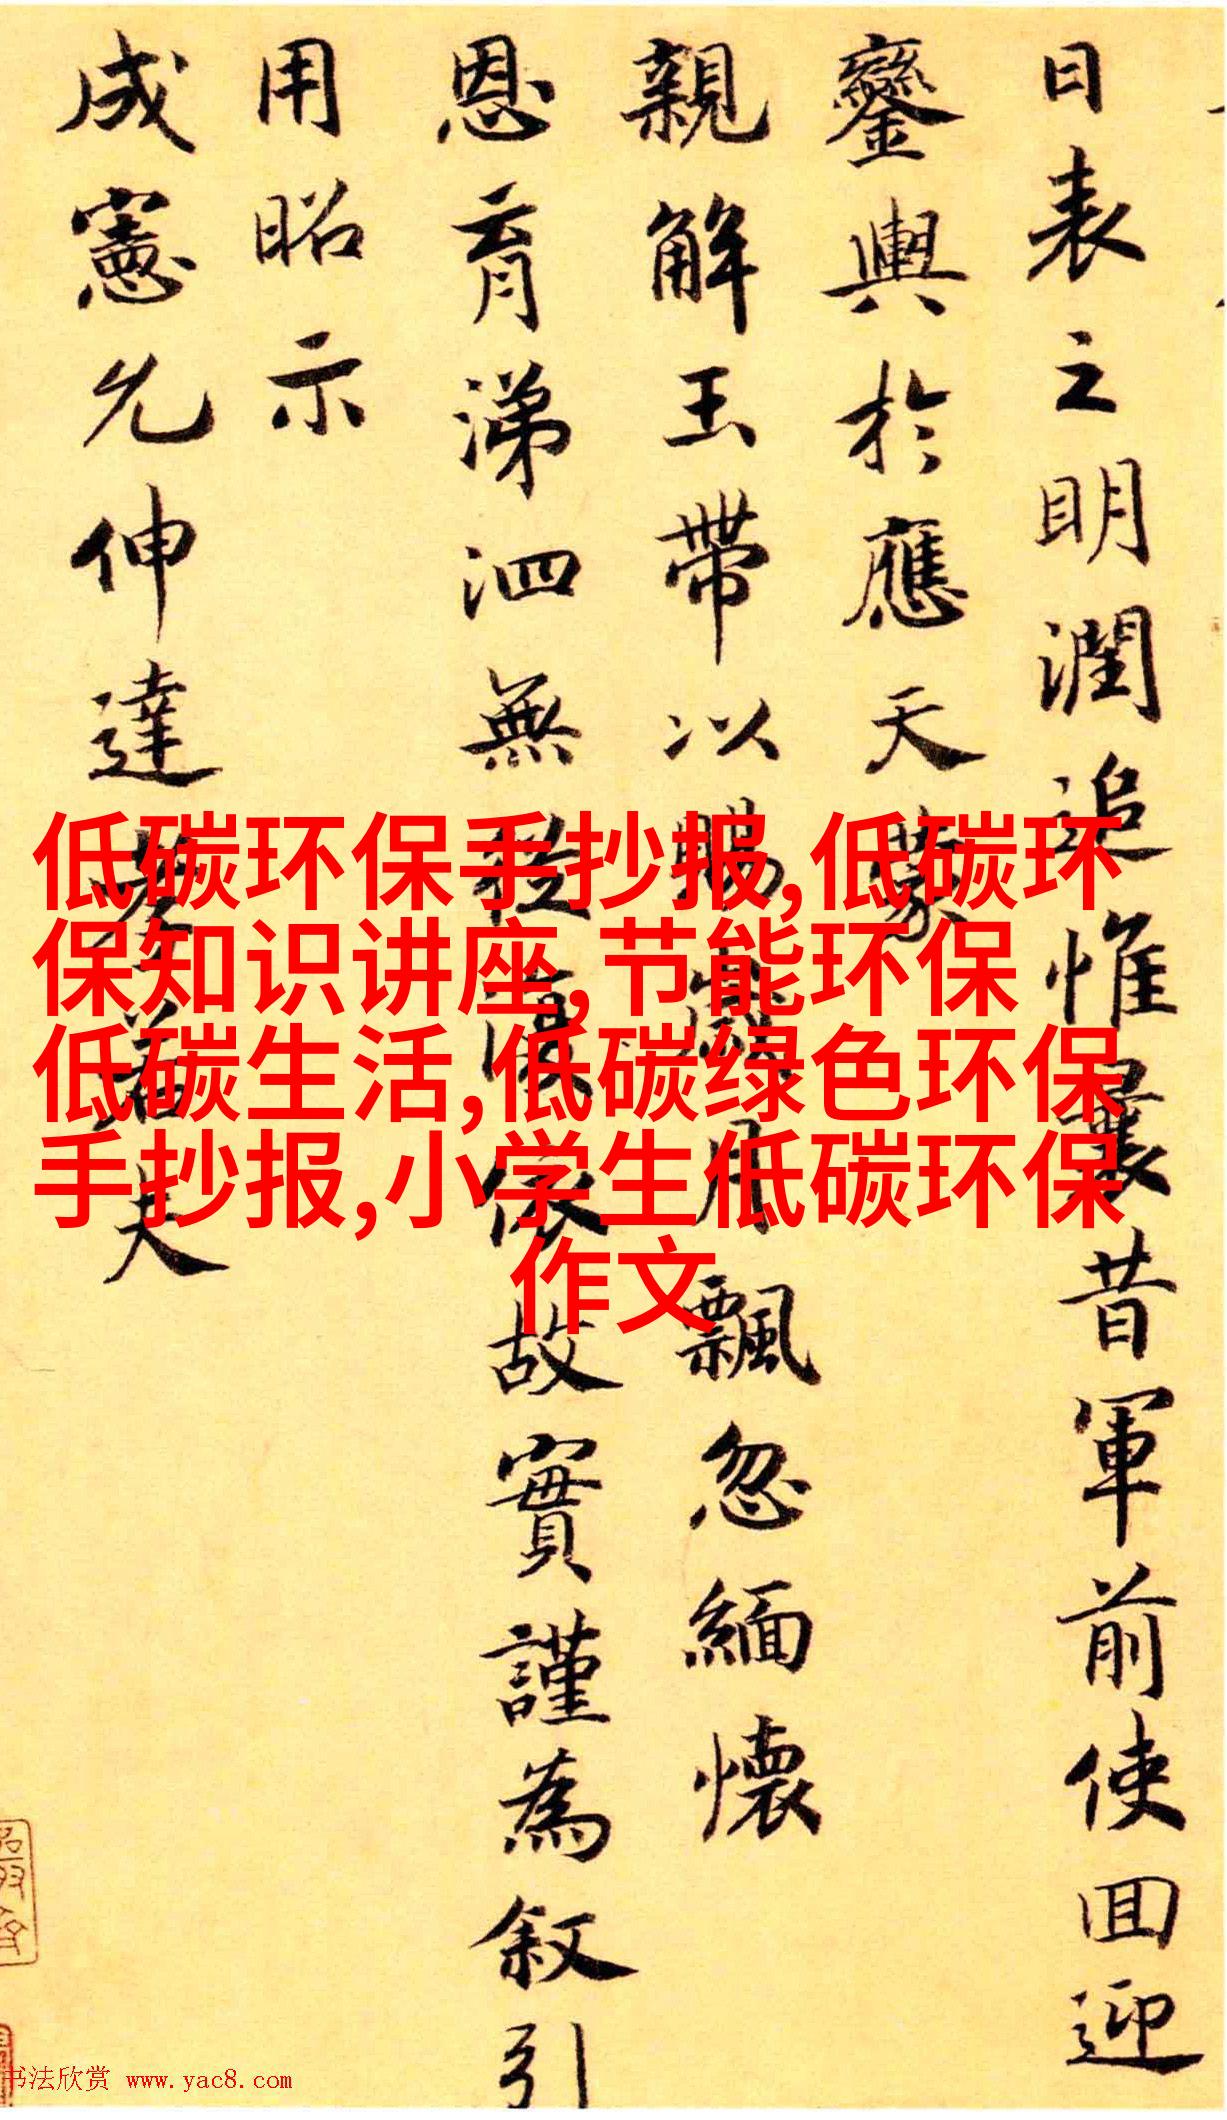 日表之明潤追惟曩昔軍前使回迎
鑾輿於應天蒙
親解玉帶以賜歲月飄忽緬懷
恩育涕泗無從慎依故實謹為叙引
用昭示
成憲允伸達孝若夫
低碳环保手抄报,低碳环
保知识讲座,节能环保
低碳生活,低碳绿色环保
手抄报,小学生低碳环保
作文
书法欣赏 www.yac8.com